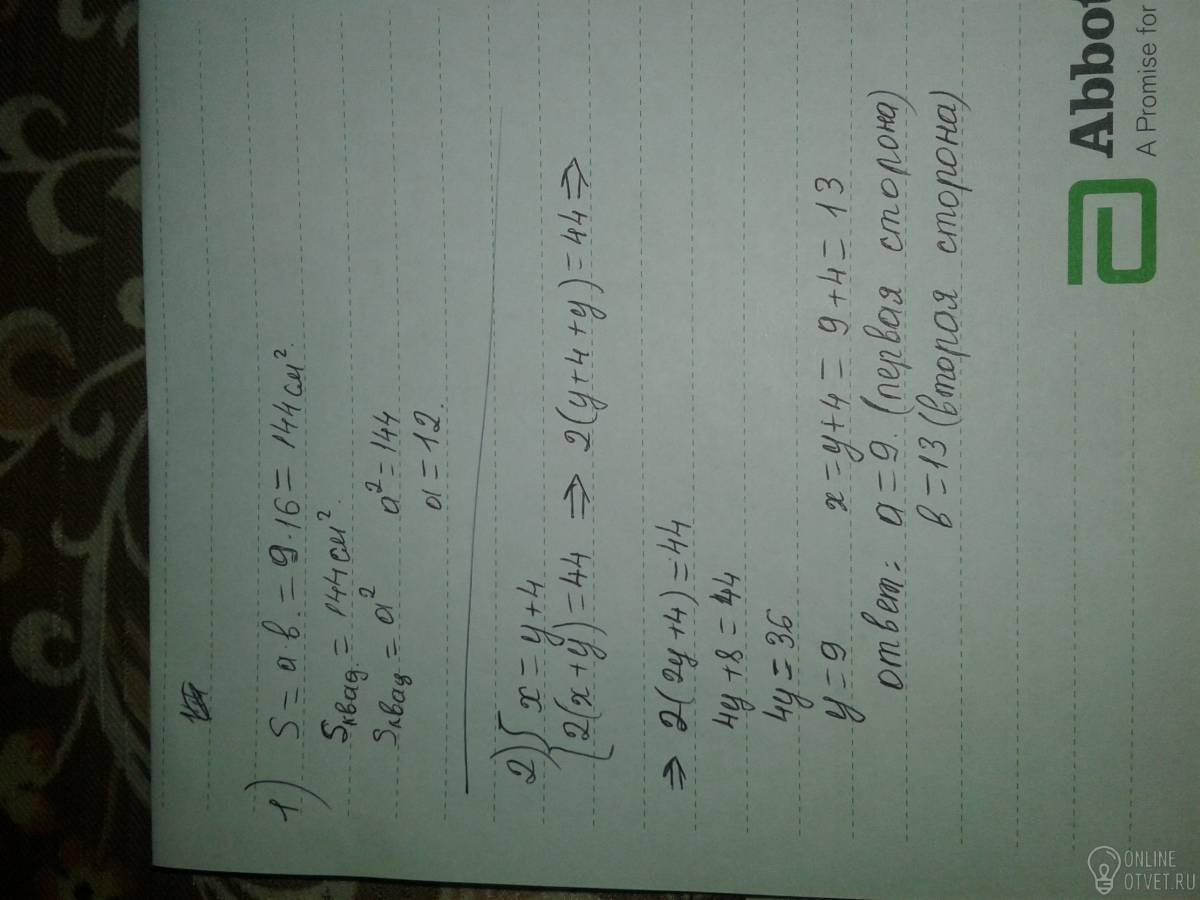 1) S = a b. = 9·16 = 144 см².
Sквад. = 144 см².
Sквад = a²   a² = 144
a = 12.
2) { x = y + 4
{ 2(x + y) = 44 ⇒ 2(y + 4 + y) = 44 ⇒
⇒ 2(2y + 4) = 44
4y + 8 = 44
4y = 36
y = 9   x = y + 4 = 9 + 4 = 13
ответ: a = 9. (первая сторона)
в = 13 (вторая сторона)
Abbot
A Promise for
ONLINE
OTVET.RU